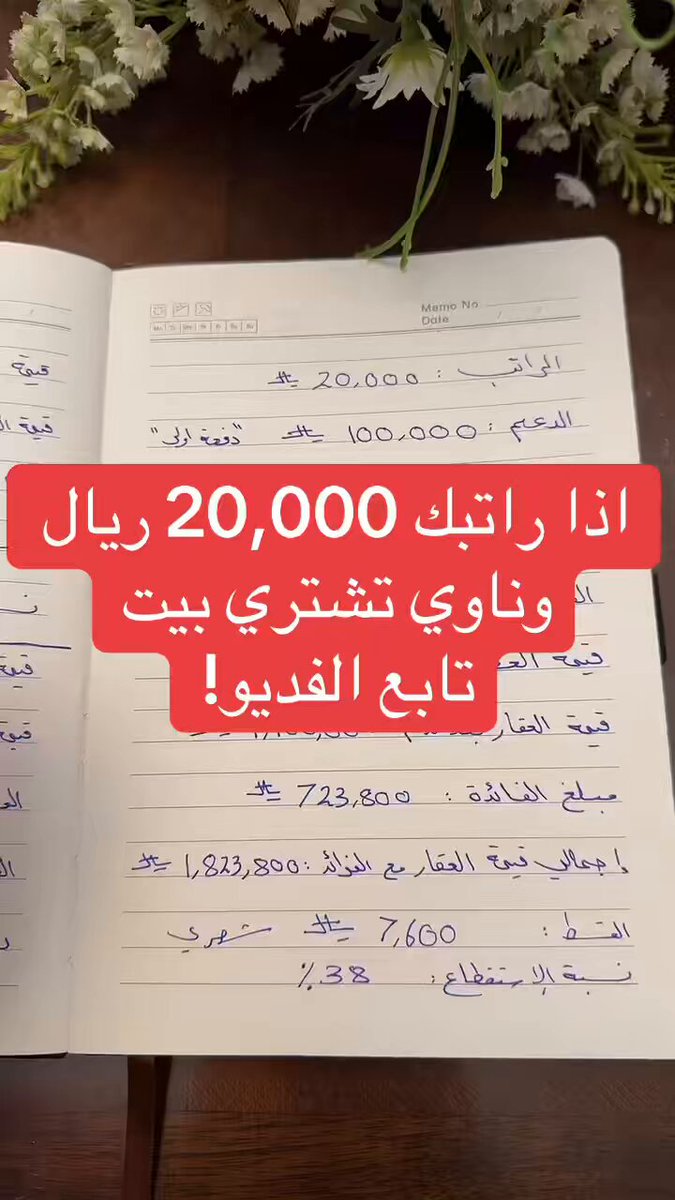 Memo No
Date
Mo Tu We Th Fr Sa Su
الراتب : 20,000
الدعم : 100,000 "دفعة اولى"
اذا راتبك 20,000 ريال
وناوي تشتري بيت
تابع الفديو!
قيمة
قيمة العقار
مبلغ الفائدة : 723,800
إجمالي قيمة العقار مع الفوائد : 1,823,800
القسط : 7,600 شهري
نسبة الإستقطاع : 38%
قيمة
قيمة
قيمة